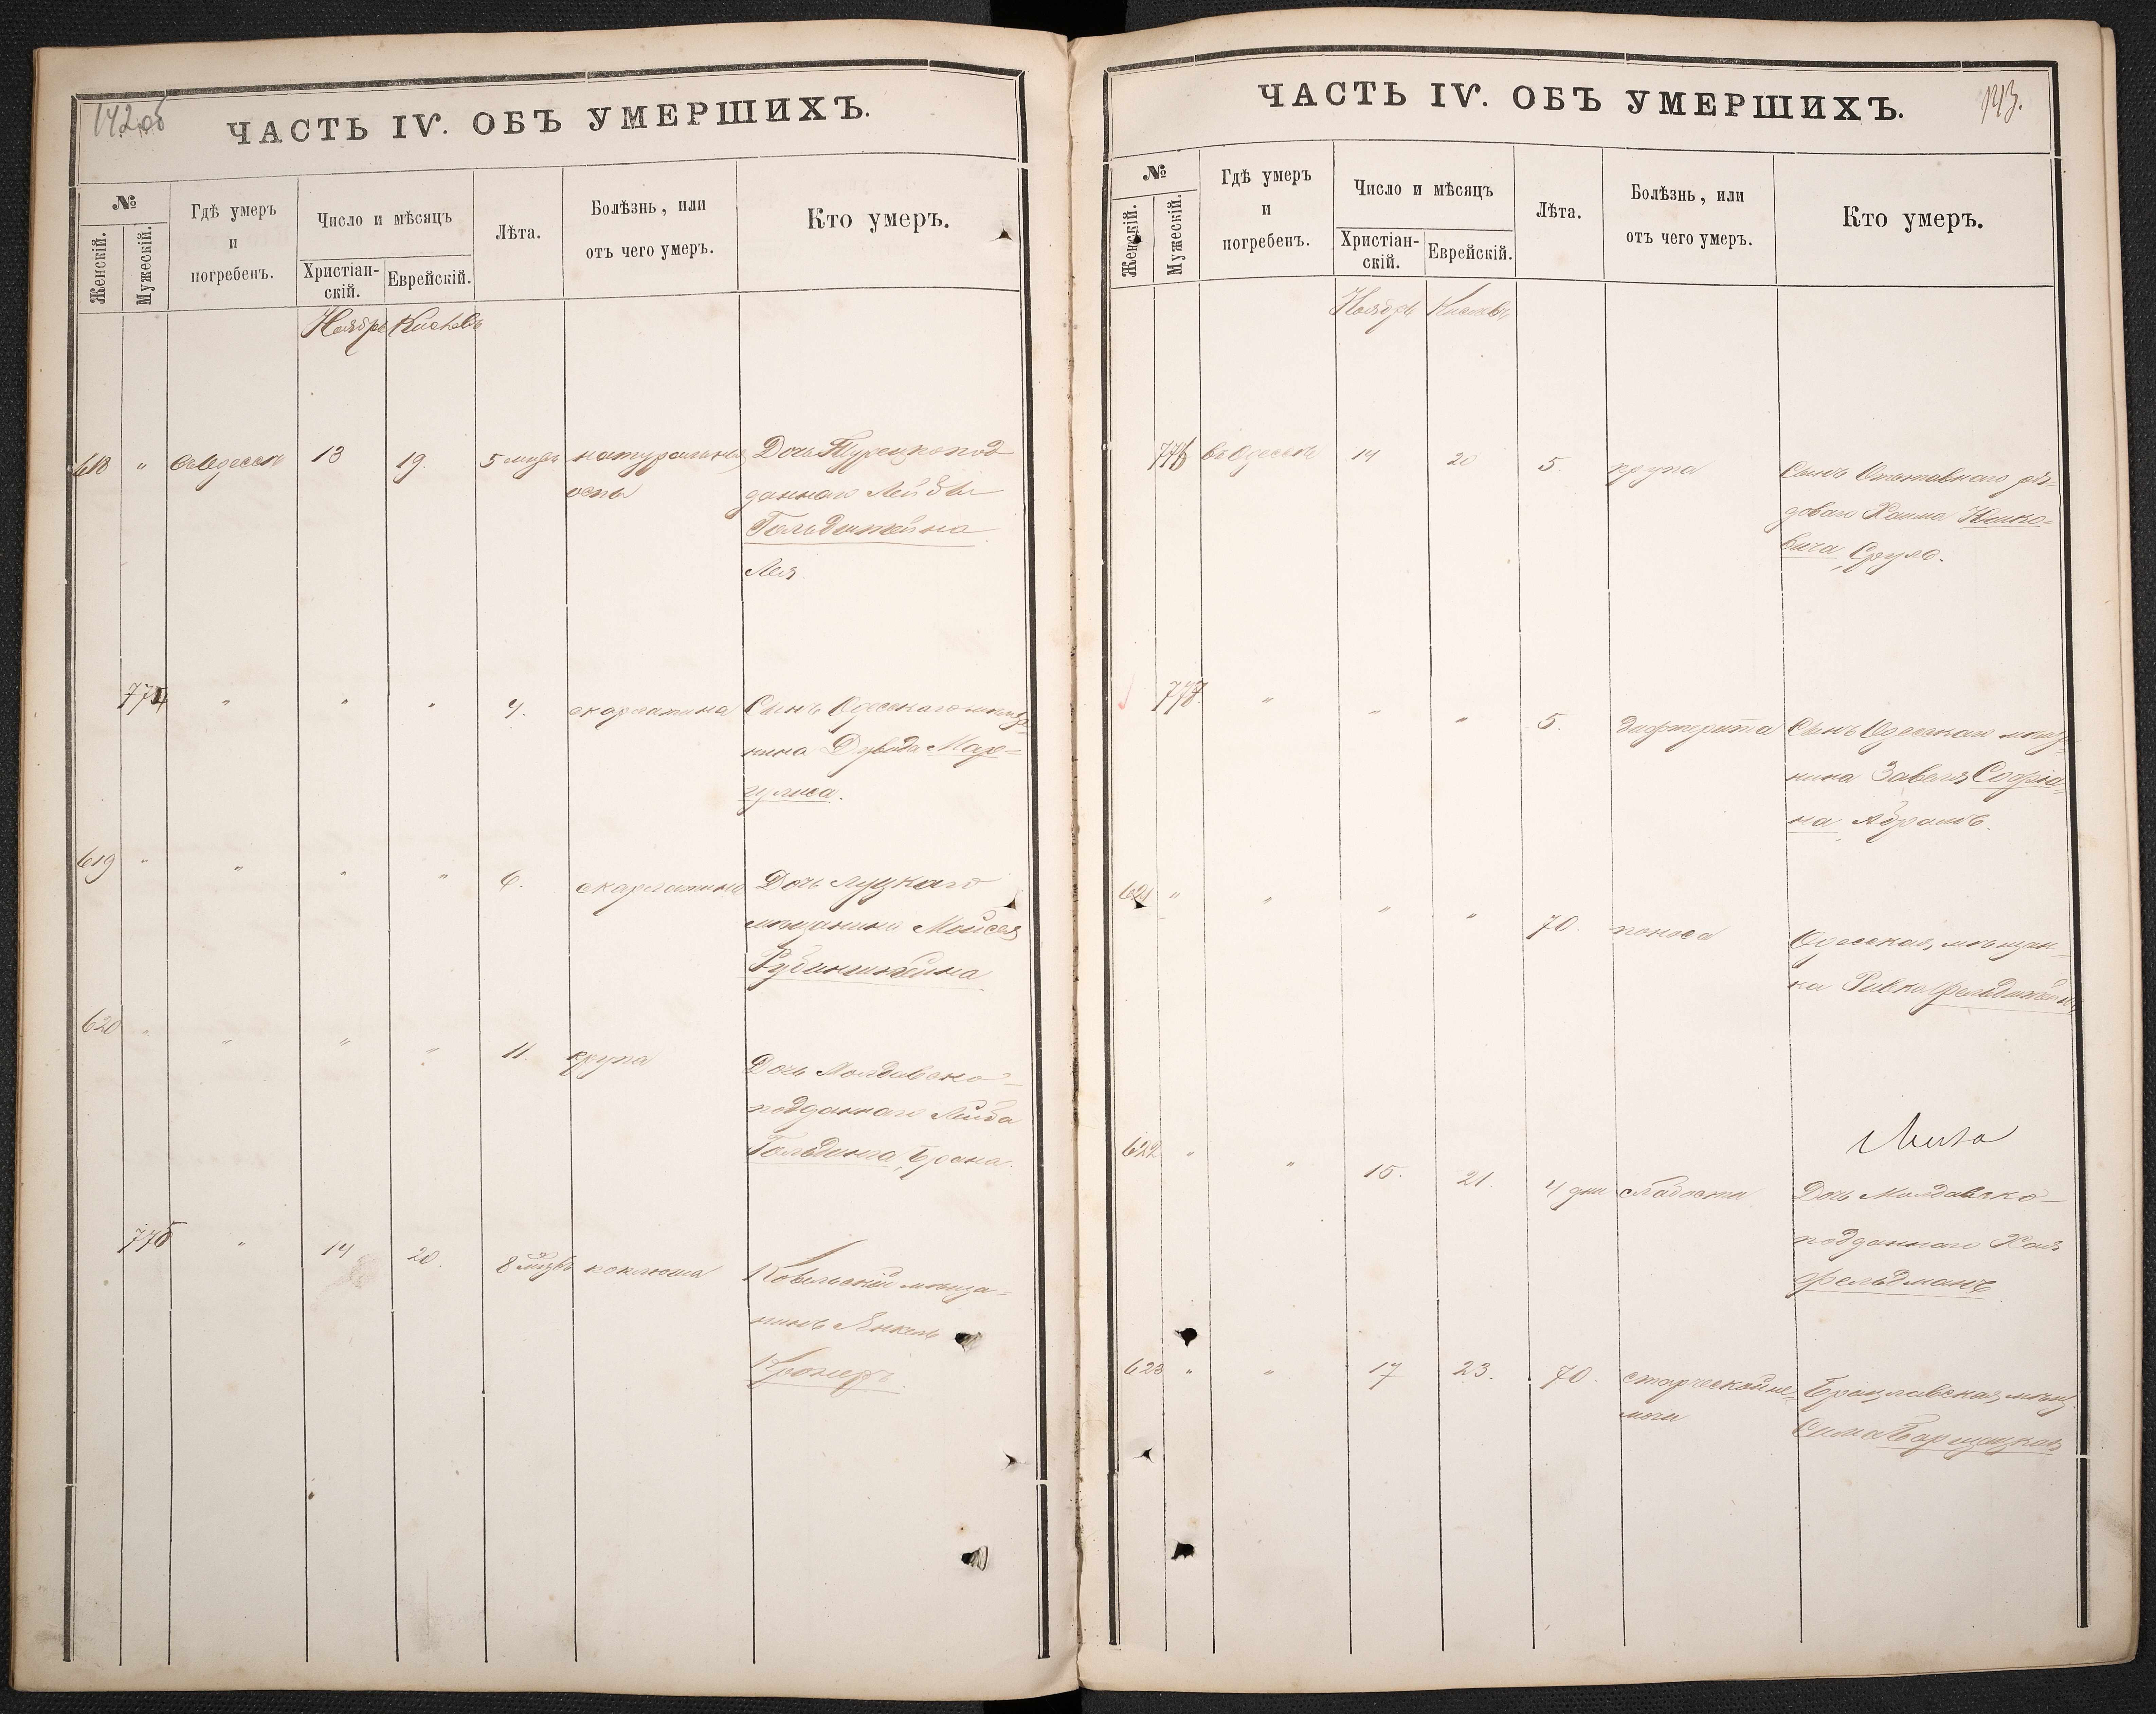 142об
ЧАСТЬ IV. ОБЪ УМЕРШИХЪ.
№
Женскій.
Мужескій.
Гдѣ умеръ
и
погребенъ.
Число и мѣсяцъ
Христіан-
скій.
Еврейскій.
Лѣта.
Болѣзнь, или
отъ чего умеръ.
Кто умеръ.
Ноябрь Кислевъ
618 " въ Одессѣ 13 19. 5 мцвъ натуральная Дочь Турецкопод
оспы
даннаго Лейзы
Гольдштейна
Лея.
774 " " " 4. скарлатина Сынъ Одесскаго мѣща-
нина Дувида Мар=
гулиса.
619 " " " " 6. скарлатина Дочь Луцкаго
мѣщанина Мойсея
Рубинштейна
620 " " " " 11. крупа
Дочь Молдавско-
подданнаго Лейба
Гольдинга, Брона.
775 " 14 20. 8 мцвъ коклюша Ковельскій мѣща=
нинъ Янкель
Кронеръ.
143.
ЧАСТЬ IV. ОБЪ УМЕРШИХЪ.
№
Женскій.
Мужескій.
Гдѣ умеръ
и
погребенъ.
Число и мѣсяцъ
Христіан-
скій.
Еврейскій.
Лѣта.
Болѣзнь, или
отъ чего умеръ.
Кто умеръ.
Ноябрь Кислевъ
776 въ Одессѣ 14 20 5. крупа Сынъ Отставнаго ря-
доваго Хаима
вича, Сруль.
777. " " " 5. дифтерита Сынъ Одесскаго мѣща-
нина Завеля Софіа-
на Абрамъ.
621 " " " " 70. поноса Одесская мѣщан
ка Ривка Фельдштейнъ
622 " " 15. 21. 4 дни слабости Дочь Молдавско-
подданнаго
Фельдманъ
623 " " 17 23. 70. старческой не- Брацлавская мѣщ.
мочи
Сима